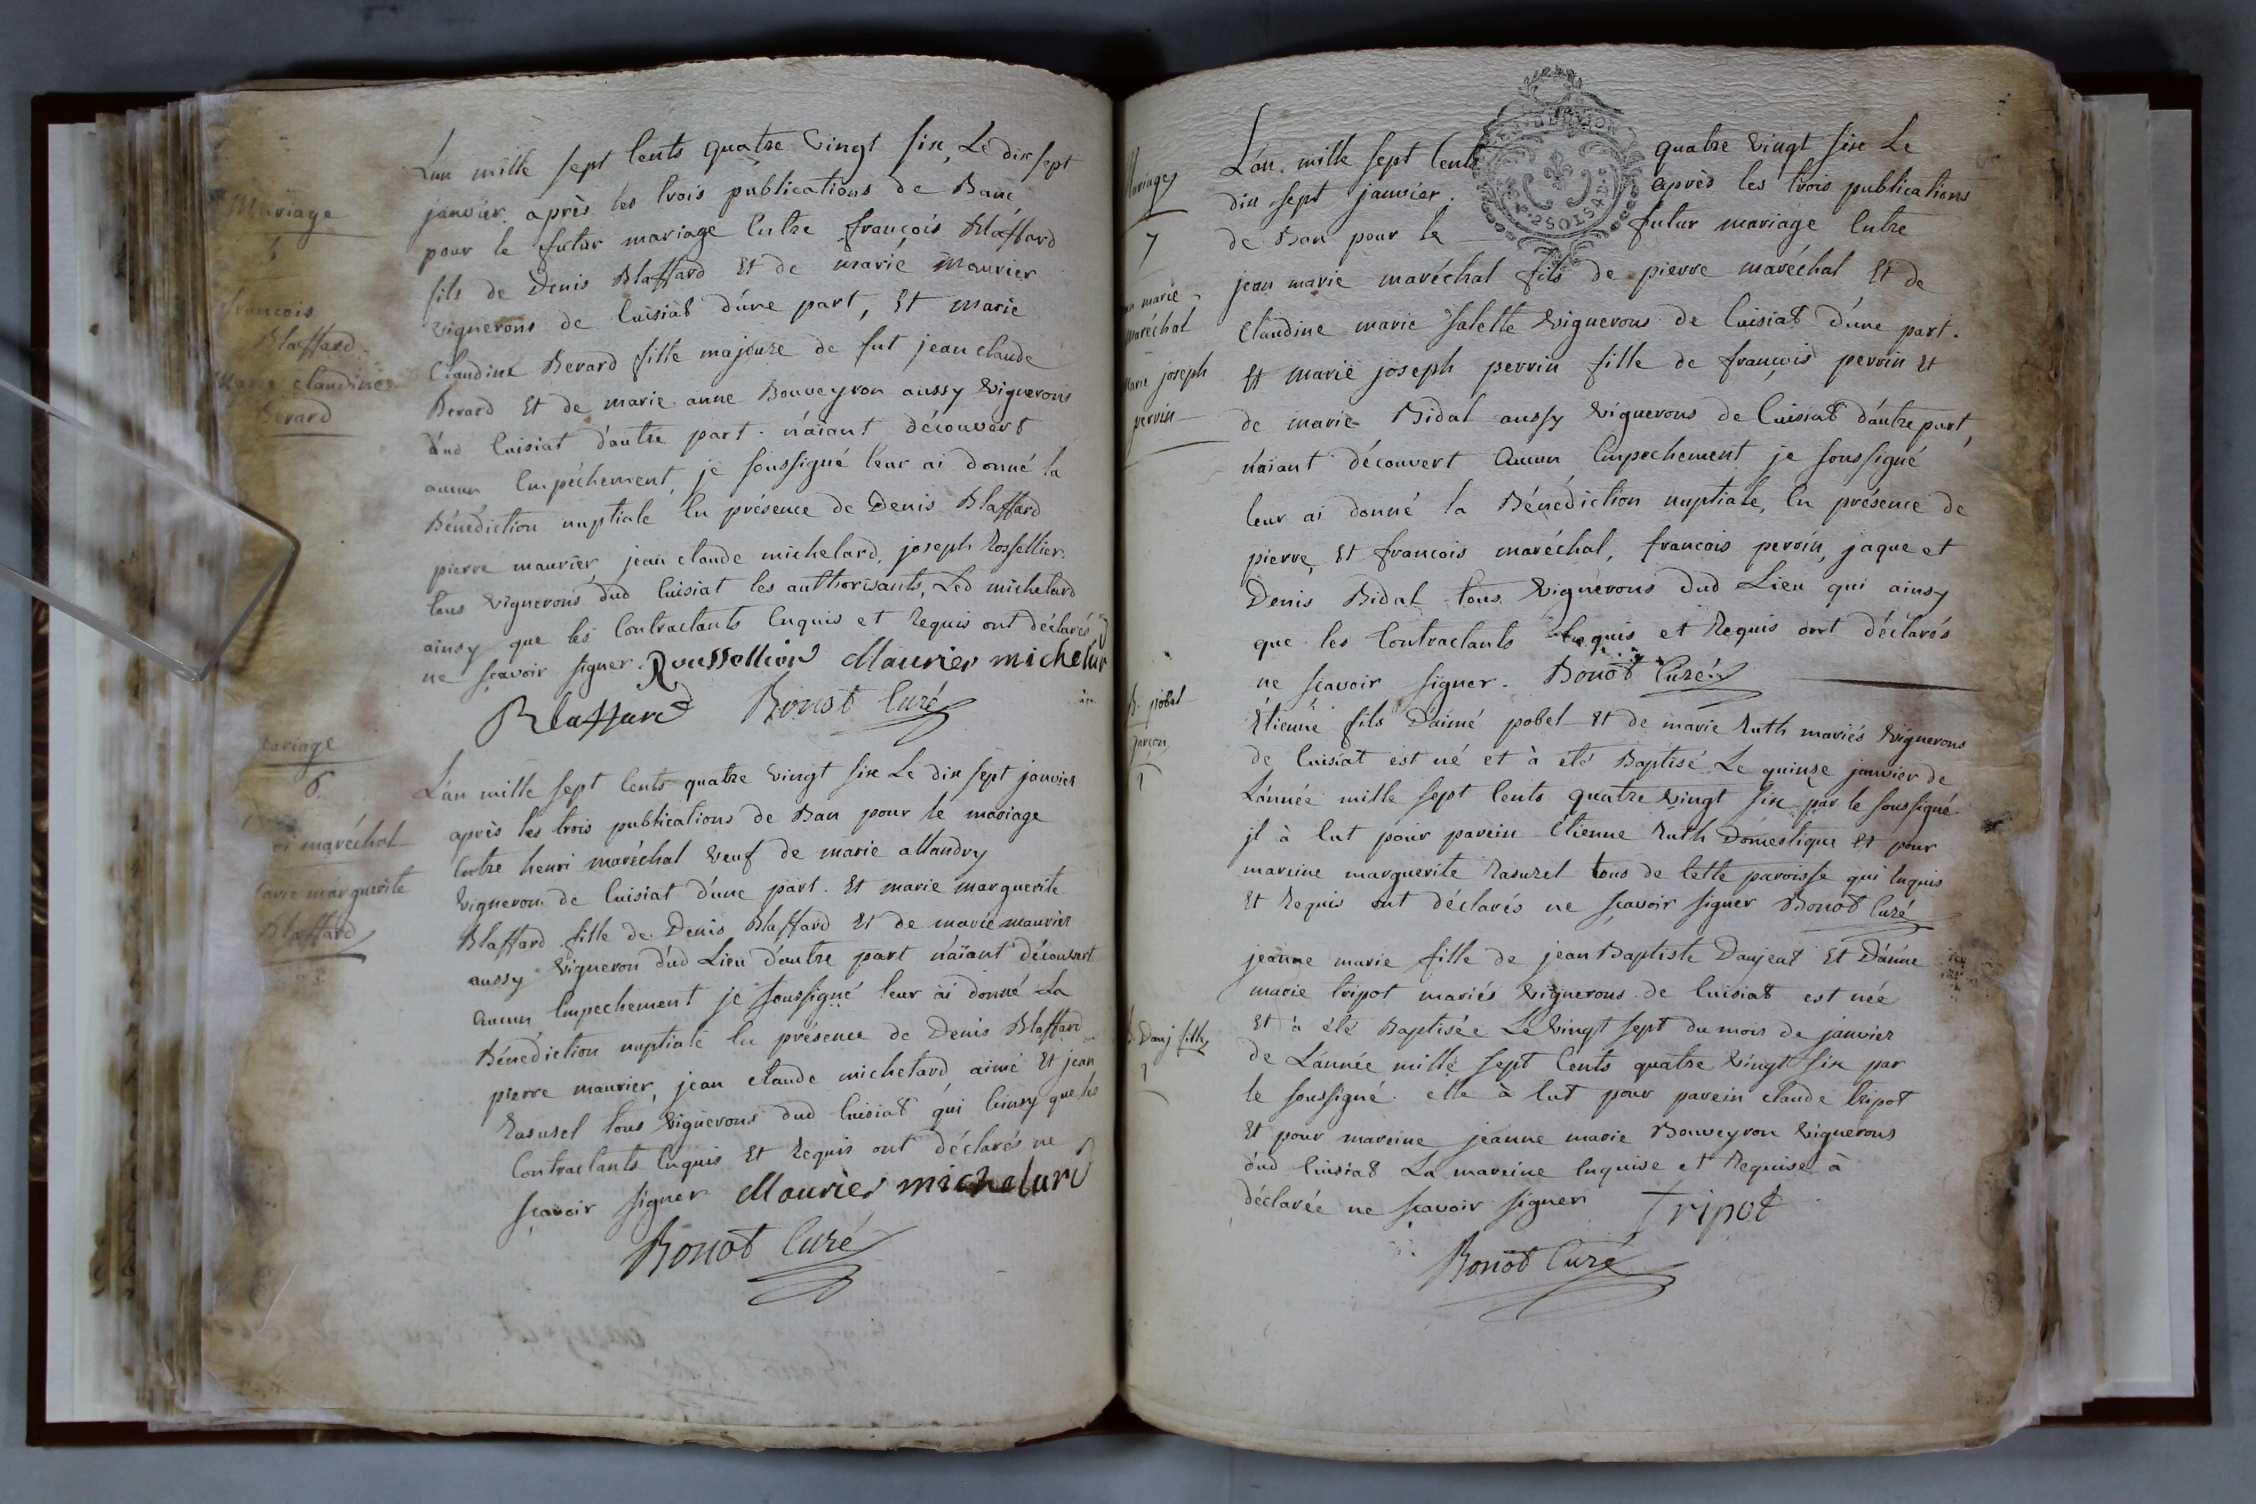 Mariage
françois
Blaffard
Marie claudine
Berard
L'an mille sept Cents quatre vingt six, Le dix sept
janvier après les trois publications de Banc
pour le futur mariage Entre françois Blaffard
fils de Denis Blaffard Et de marie maurier
vignerons de Cuisiat d'une part, Et marie
Claudine Berard fille majeure de fut jean claude
Berard Et de marie anne Bouveyron aussy vignerons
dud Cuisiat d'autre part. n'aïant découvert
aucun Empéchement, je soussigné leur ai donné la
Bénédiction nuptiale En présence de Denis Blaffard
pierre maurier, jean claude michelard, joseph Rossellier
tous vignerons dud Cuisiat les authorisants, Led michelard
ainsy que les Contractants Enquis et Requis ont déclarés
ne sçavoir signer. Roussellion Maurier michelar
Blaffard Bonot Curé
mariage
6
maréchal
marie marguerite
Blaffard
L'an mille sept Cents quatre vingt six Le dix sept janvier
après les trois publications de Ban pour le mariage
Entre henri maréchal veuf de marie allandry
vigneron de Cuisiat d'une part. Et marie marguerite
Blaffard fille de Denis Blaffard Et de marie maurier
aussy vigneron dud Lieu d'autre part n'aïant découvert
aucun Empechement je soussigné leur ai donné La
Bénédiction nuptiale En présence de Denis Blaffard
pierre maurier, jean claude michelard, aimé Et jean
Rasurel tous vignerons dud Cuisiat qui Einsy que les
Contractants Enquis Et Requis ont déclarés ne
sçavoir signer Maurier michelard
Bonot Curé
Mariage
7
jean marie
maréchal
marie joseph
perrin
L'an mille sept Cents quatre vingt six Le
dix sept janvier. après les trois publications
de Ban pour le futur mariage Entre
jean marie maréchal fils de pierre maréchal Et de
Claudine marie Salette vignerons de Cuisiat d'une part.
Et marie joseph perrin fille de françois perrin Et
de marie Bidal aussy vignerons de Cuisiat d'autre part,
n'aïant découvert Aucun Empechement je soussigné
leur ai donné la Bénédiction nuptiale, En présence de
pierre, Et françois maréchal, francois perrin, jaque et
Denis Bidal tous vignerons dud Lieu qui ainsy
que les Contractants Enquis et Requis ont déclarés
ne sçavoir signer. Bonot Curé
B. pobel
garçon
1
Etienne fils D'aimé pobel Et de marie Ruth mariés vignerons
de Cuisiat est né et à été Baptisé Le quinze janvier de
L'année mille sept Cents quatre vingt six par le soussigné
jl à Eut pour parein Etienne Ruth Domestique Et pour
mareine marguerite Rasurel tous de Cette paroisse qui Enquis
Et Requis ont déclarés ne sçavoir signer Bonot Curé
B. Danj fille
1
jeanne marie fille de jean Baptiste Danjeat Et D'anne
marie tripot mariés vignerons de Cuisiat est née
Et à été Baptisée Le vingt sept du mois de janvier
de L'année mille sept Cents quatre vingt six par
le soussigné. elle à Eut pour parein claude tripot
Et pour mareine jeanne marie Bouveyron vignerons
dud Cuisiat La mareine Enquise et Requise à
déclarée ne sçavoir signer Tripot
Bonot Curé